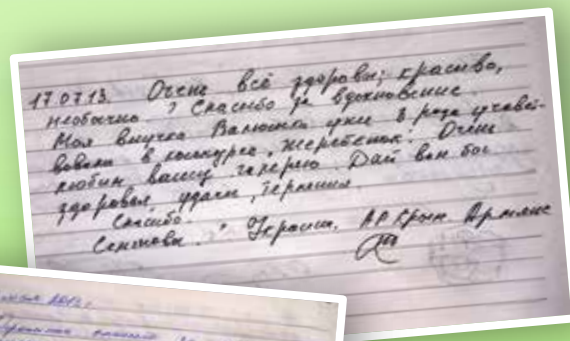 17.07.13. Очень всё здорово; красиво,
необычно! Спасибо за вдохновение
Моя внучка Валюшка уже 3 раза участ-
вовала в конкурсе "жеребенок". Очень
любим вашу галерею. Дай вам бог
здоровья, удачи, терпения.
Спасибо.
Украина. АР Крым. Армянс